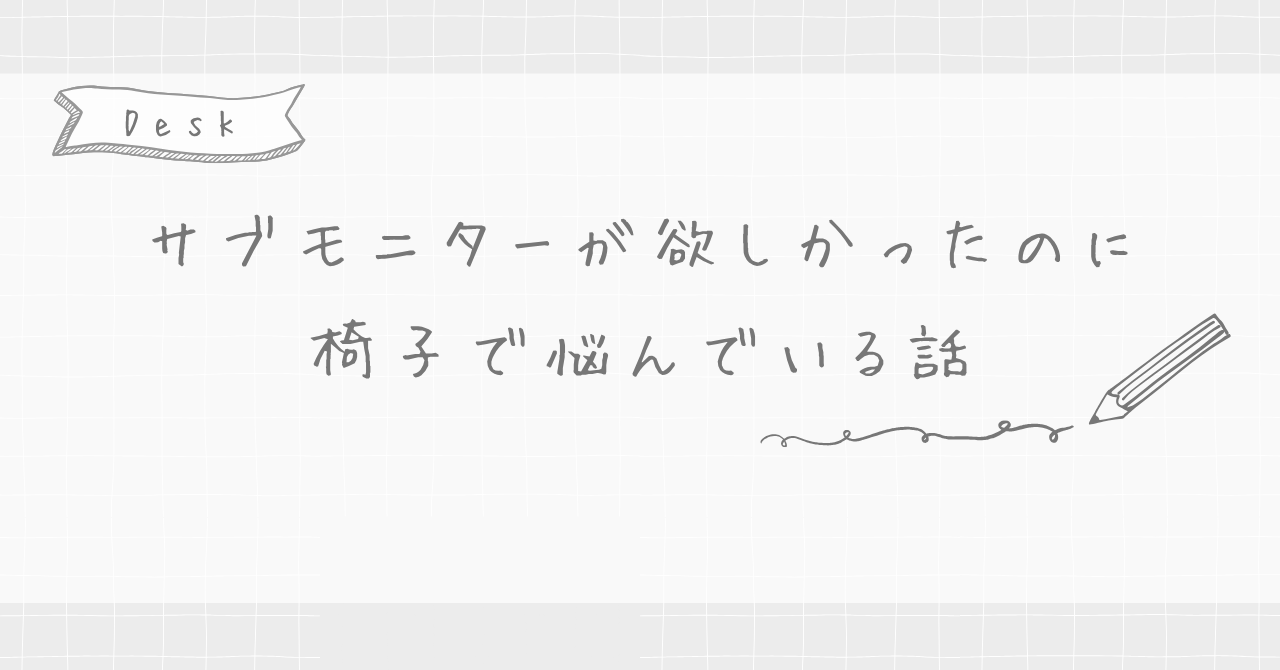 Desk
サブモニターが欲しかったのに
椅子で悩んでいる話